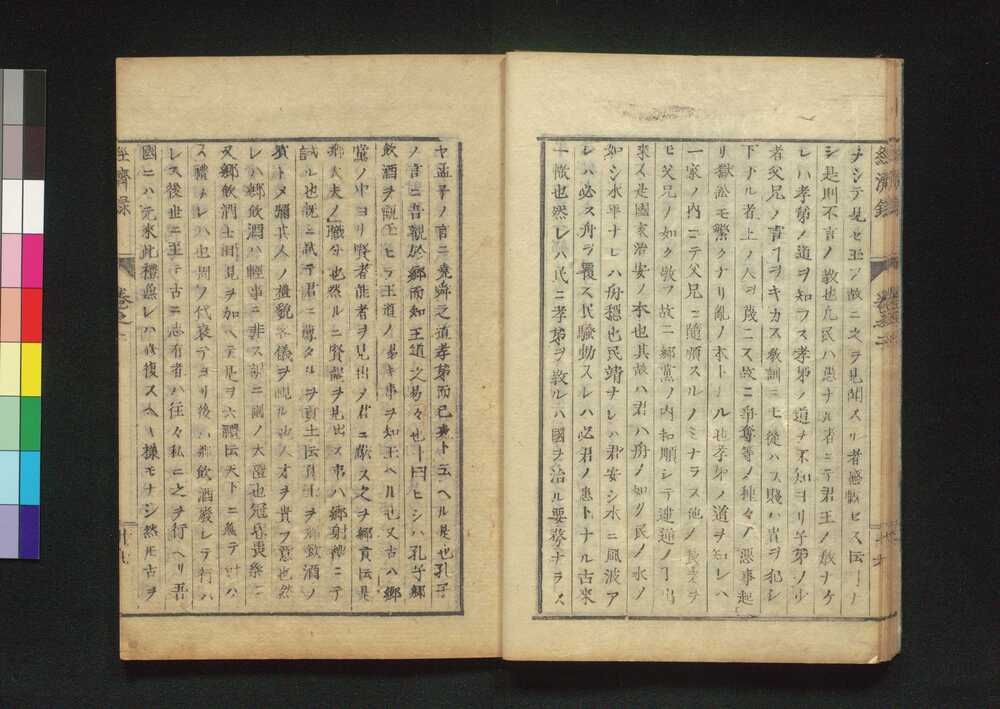 ナシテ見セ玉フ故ニ之ヲ見聞スル者感服セスト云コトナ
シ是則不言ノ教也凡民ハ愚ナル者ニテ君王ノ教ナケ
レハ孝弟ノ道ヲ知ラス孝弟ノ道ヲ不知ヨリ子弟ノ少
者父兄ノ言フヿヲキカス教訓ニモ從ハス賤ハ貴ヲ犯シ
下ナル者上ノ人ヲ蔑ニス故ニ爭奪等ノ種々ノ悪事起
リ獄訟モ繁クナリ亂ノ本トナル也孝弟ノ道ヲ知レハ
一家ノ内ニテ父兄ニ隨順スルノミナラス他ノ長老ヲ
モ父兄ノ如ク敬フ故ニ郷黨ノ内和順シテ
來ス是國家治安ノ本也其故ハ君ハ舟ノ如ク民ハ水ノ
如シ水平ナレハ舟穩也民靖ナレハ君安シ水ニ風波ア
レハ必ス舟ヲ覆ス民騷動スレハ必君ノ患トナル古來
一徹也然レハ民ニ孝弟ヲ教ルハ國ヲ治ル要務ナラス
經濟録
ヤ孟子ノ言ニ堯舜之道孝弟而已矣ト云ヘルハ是也孔子
ノ言ニ吾觀於郷而知王道之易々也ト曰ヒシハ孔子郷
飲酒ヲ觀玉ヒテ王道ノ易キ事ヲ知王ヘル也又古ハ郷
黨ノ中ヨリ賢者能者ヲ見出シ君ニ獻ス之ヲ郷貢ト云是
郷大夫ノ職分也然ルニ賢能ヲ見出ス事ハ郷射禮ニテ
試ル也既ニ試テ君ニ薦タルヲ貢士ト云貢士ヲ郷飲酒ノ
賓トメ猶其人ノ禮貌容儀ヲ觀ル也人才ヲ貴フ意也然
レハ郷飲酒ハ輕事ニ非ス誠ニ國ノ大禮也冠昏喪祭ニ
又郷飲酒士相見ヲ加ヘテ是ヲ六禮ト云天下ニ無テ叶ハ
ス禮ナレハ也周ノ代衰テヨリ後ハ郷飲酒廢レテ行ハ
レス後世ニ至テ古ニ志有者ハ往々私ニ之ヲ行ヘリ吾
國ニハ元來此禮無レハ修復スヘキ樣モナシ然レモ古ヲ
經濟録